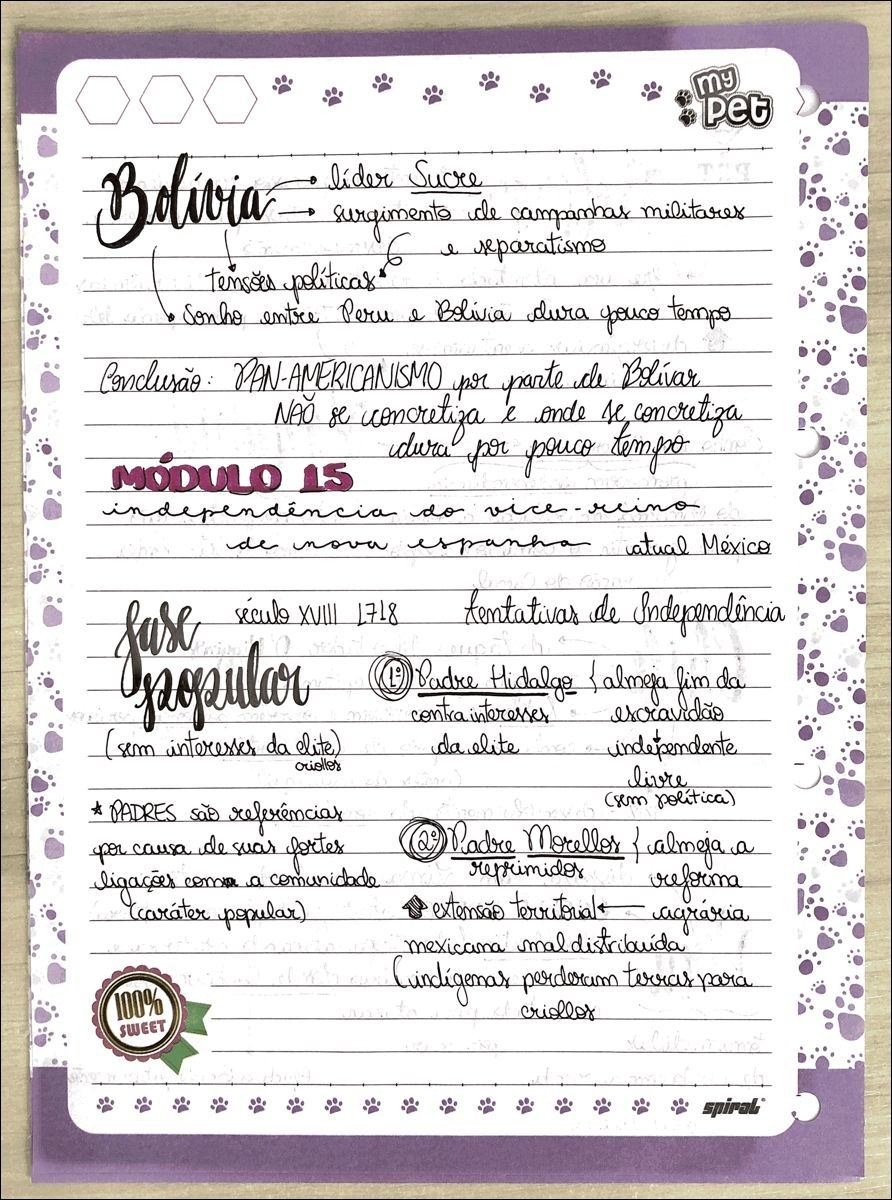 my pet
Bolívia → líder Sucre
→ surgimento de campanhas militares
e separatismo
tensões políticas
Sonho entre Peru e Bolívia dura pouco tempo
Conclusão: PAN-AMERICANISMO por parte de Bolívar
NAÕ se concretiza e onde se concretiza
dura por pouco tempo
MÓDULO 15
independência do vice-reino
de nova espanha atual México
fase popular
século XVIII 1718
(sem interesses da elite)
criollos
* PADRES são referências
por causa de suas fortes
ligações com a comunidade
(caráter popular)
tentativas de Independência
1º Padre Hidalgo { almeja fim da
contra interesses escravidão
da elite independente
livre
(sem política)
2º Padre Morellos { almeja a
reprimidos reforma
⬆ extensão territorial ← agrária
mexicana mal distribuída
(indígenas perderam terras para
criollos
100%
SWEET
spiral